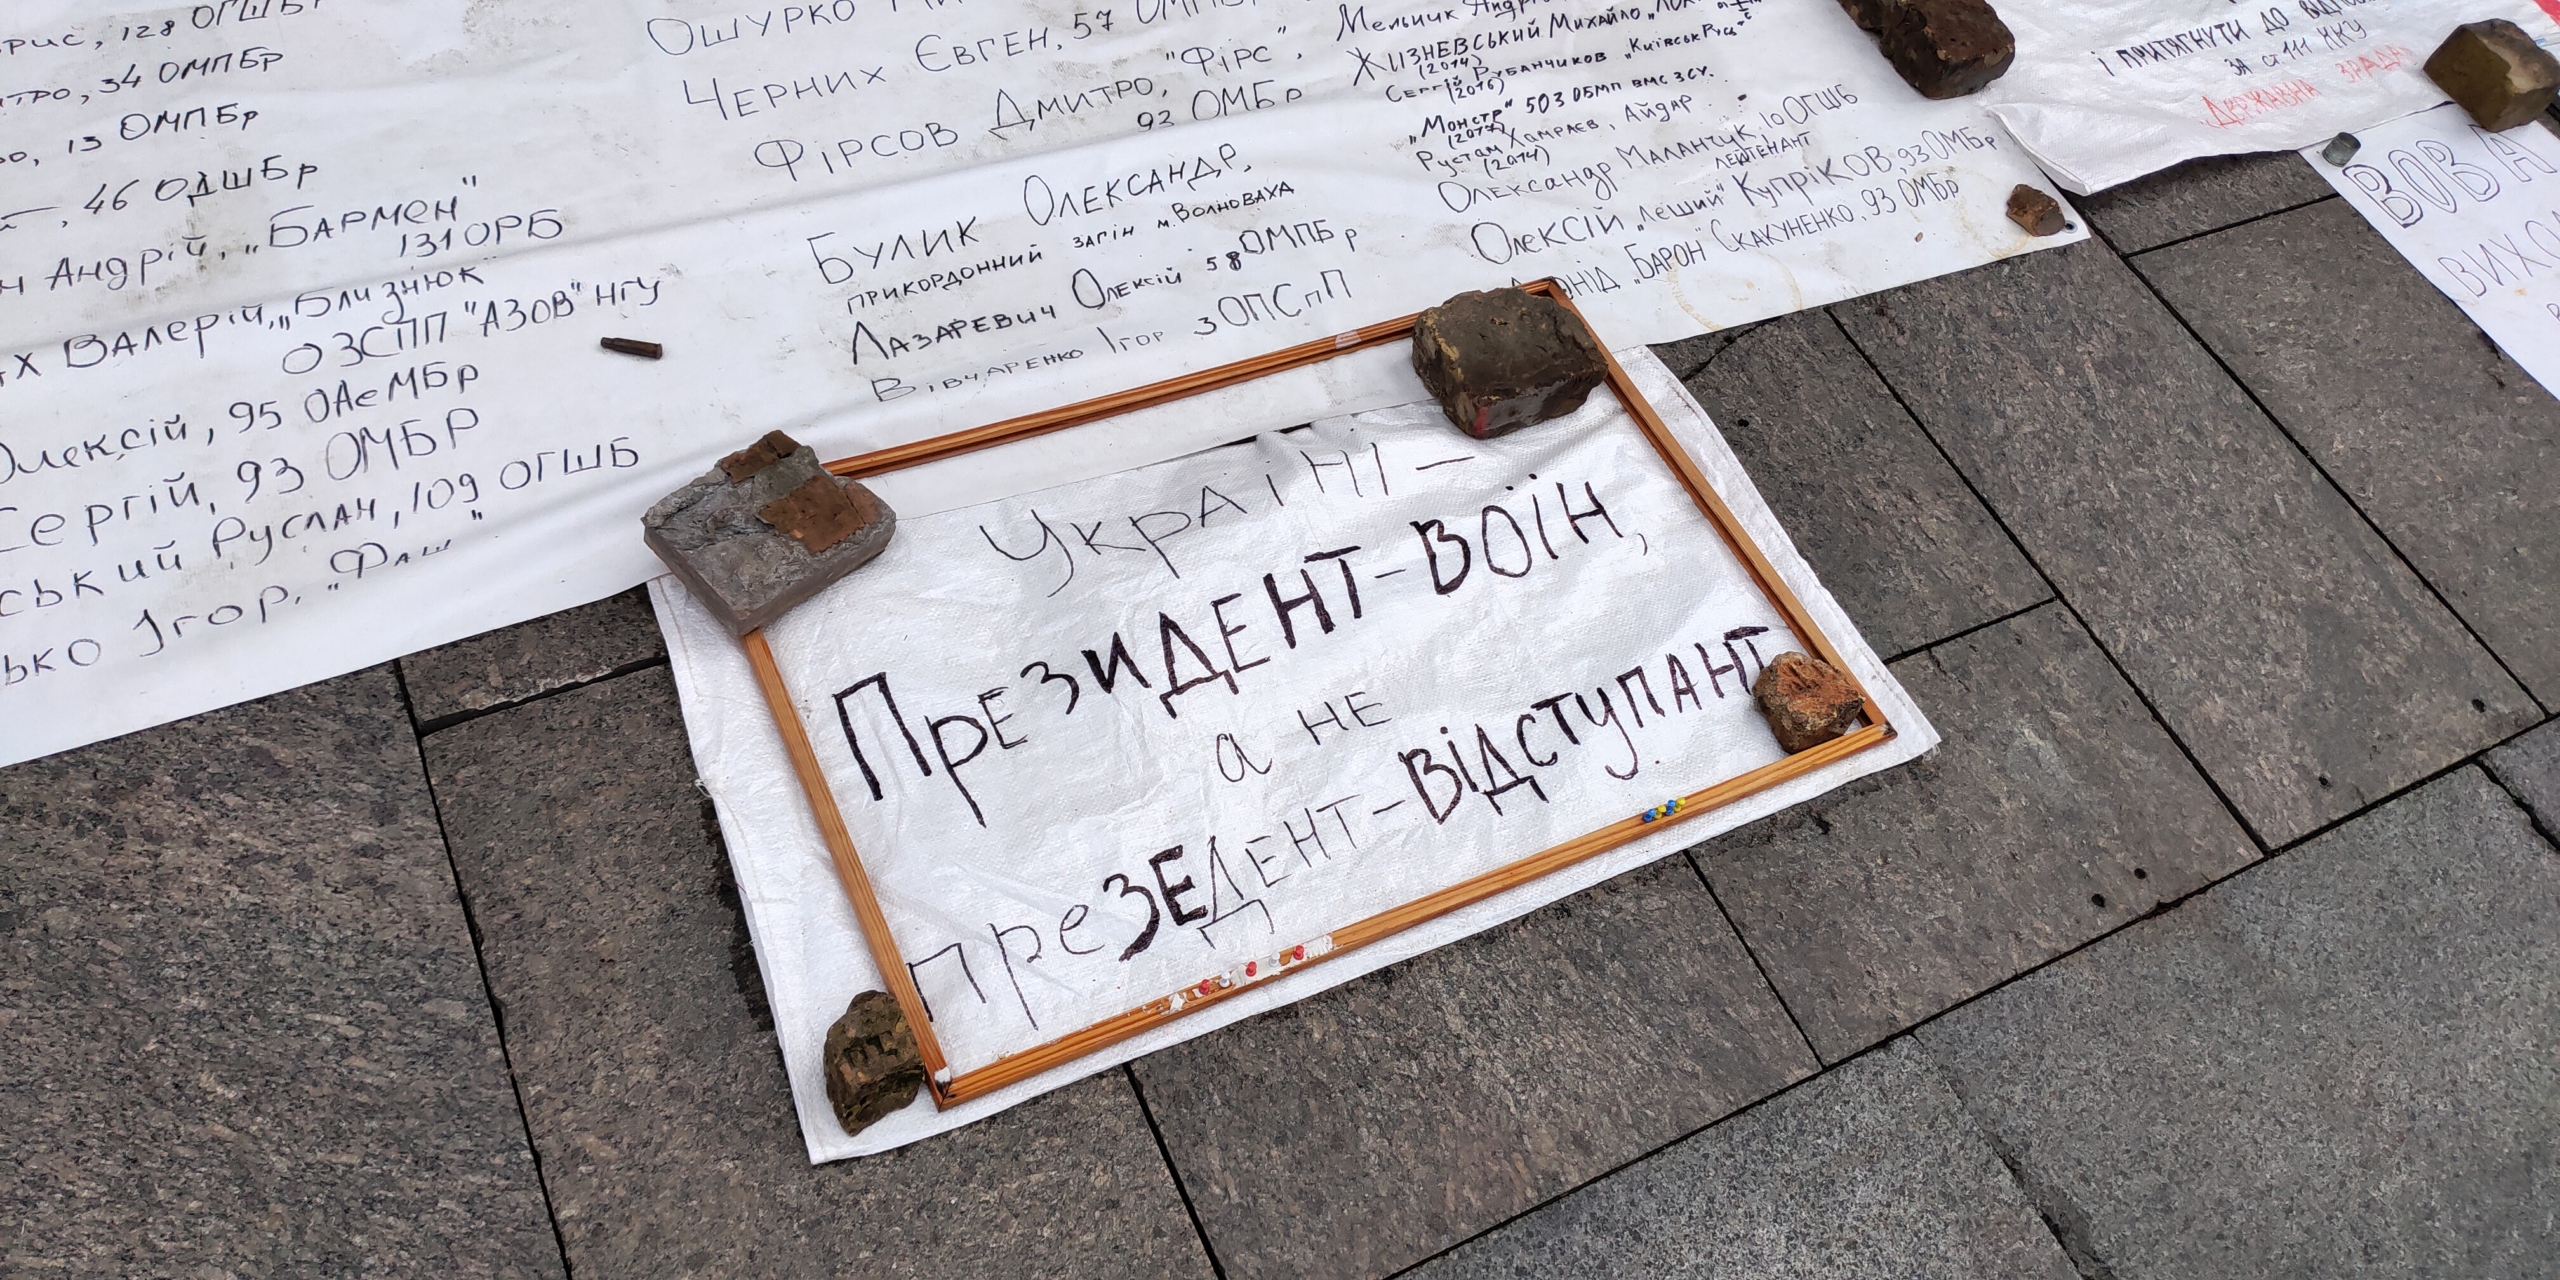 128 ОГШБр
34 ОМПБр
13 ОМПБр
46 ОДШБр
Андрій, „Бармен"
131 ОРБ
Валерій, „Близнюк"
ОЗСПП "АЗОВ" НГУ
Олексій, 95 ОАеМБр
Сергій, 93 ОМБР
ський Руслан, 109 ОГШБ
ько Ігор, „Фаш"
Ошурко
Черних Євген, 57
Фірсов Дмитро, "Фірс",
93 ОМБр
Булик Олександр,
прикордонний загін м. Волноваха
Лазаревич Олексій 58 ОМПБр
Вівчаренко Ігор 3 ОПСпП
Мельник
Жизневський Михайло
(2014)
Сергій Рубанчиков „Київська Русь"
(2016)
„Монстр" 503 ОБМП ВМС ЗСУ.
(2017)
Рустам Хамраєв, Айдар
(2014)
Олександр Маланчук, 10 ОГШБ
лейтенант
Олексій „Леший" Купріков, 93 ОМБр
„Барон" Скакуненко, 93 ОМБр
Україні –
Президент-воїн,
а не
презедент-відступант
і притягнути до
за ст 111 ККУ
Державна зрада
ВОВА